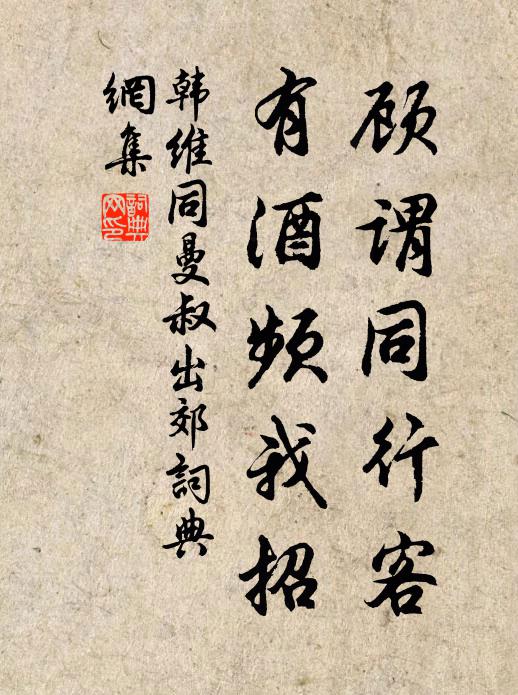 顾谓同行客
有酒频我招
韩维同曼叔出郊詞典
網集
詞典
网印